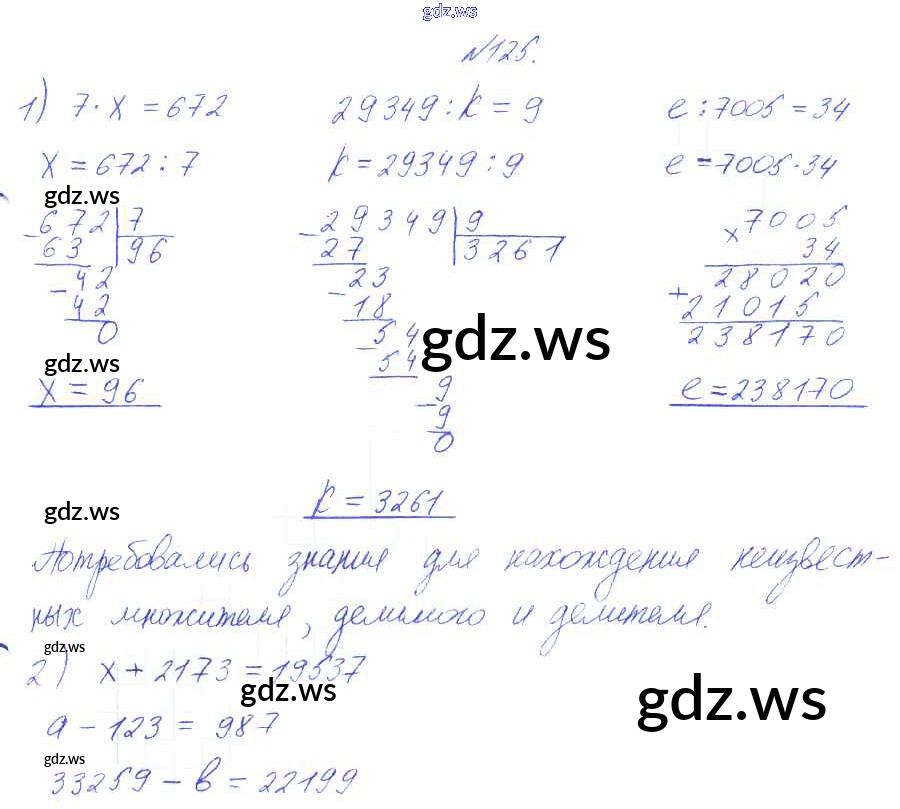 gdz.ws
№125.
1) 7·x=672 29349:k=9 e:7005=34
x=672:7 k=29349:9 e=7005·34
gdz.ws
-672|7 -29349|9 ×7005
63 96 27 3261 34
-42 -23 28020
42 18 +21015
0 -54 238170
gdz.ws 54 gdz.ws
x=96 -9 e=238170
9
0
gdz.ws k=3261
Потребовались знания для нахождения неизвест-
ных множителя, делимого и делителя.
gdz.ws
2) x+2173=19537
gdz.ws gdz.ws
a-123=987
gdz.ws
33259-в=22199